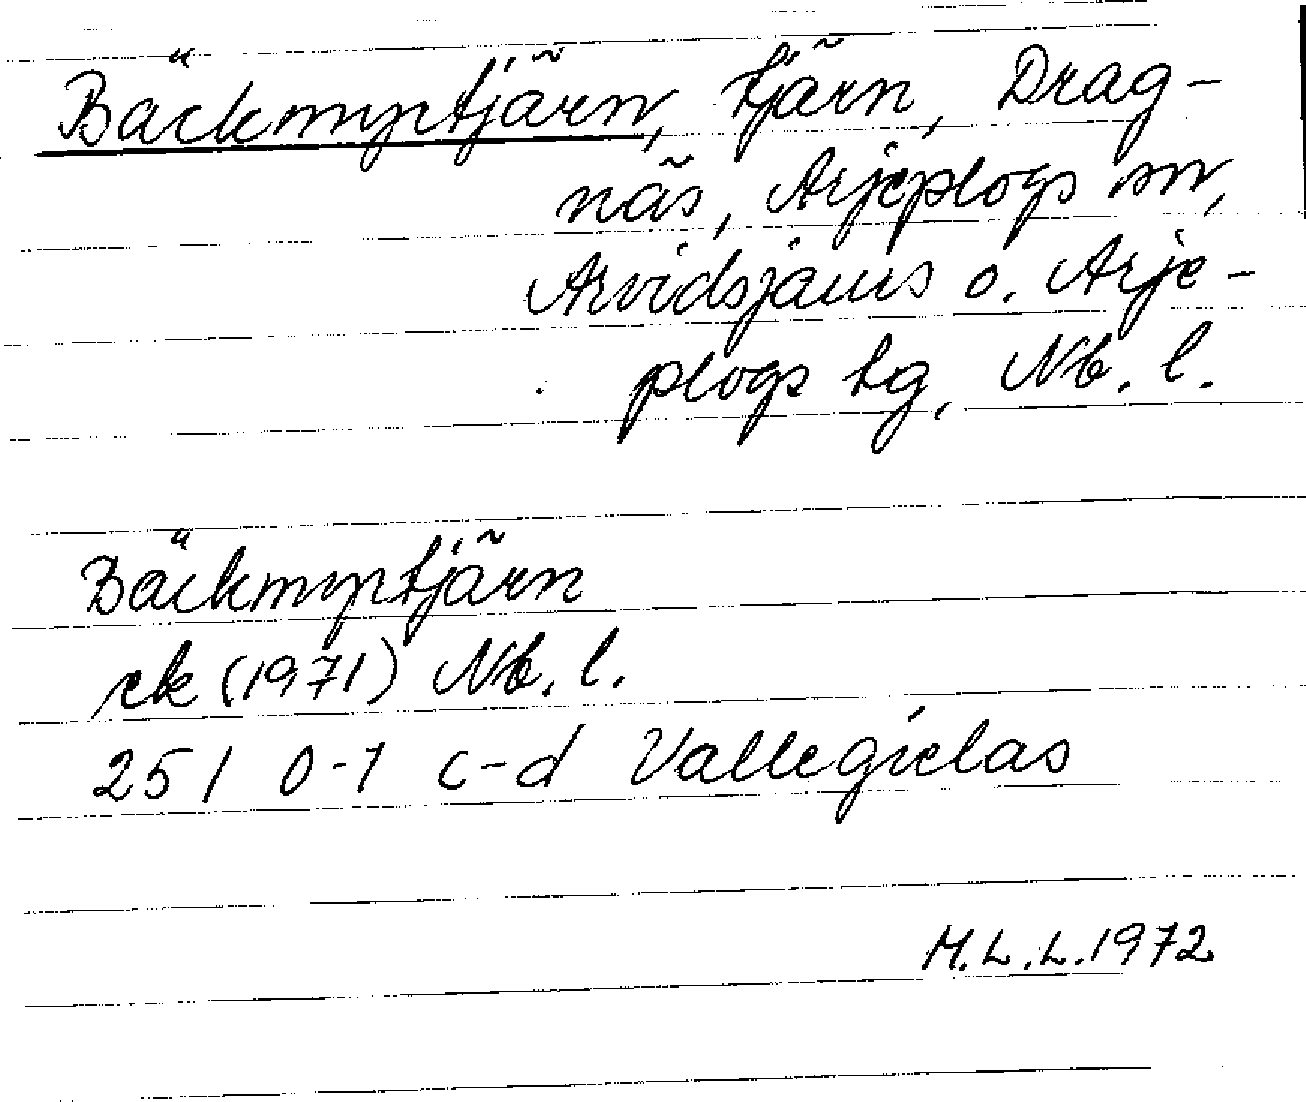 Bäckmyrtjärn, tjärn, Drag-
näs, Arjeplogs sn,
Arvidsjaurs o. Arje-
plogs tg, Nb. l.
Bäckmyrtjärn
ek (1971) Nb. l.
25 I 0-1 c-d Vallegielas
M.L.L. 1972